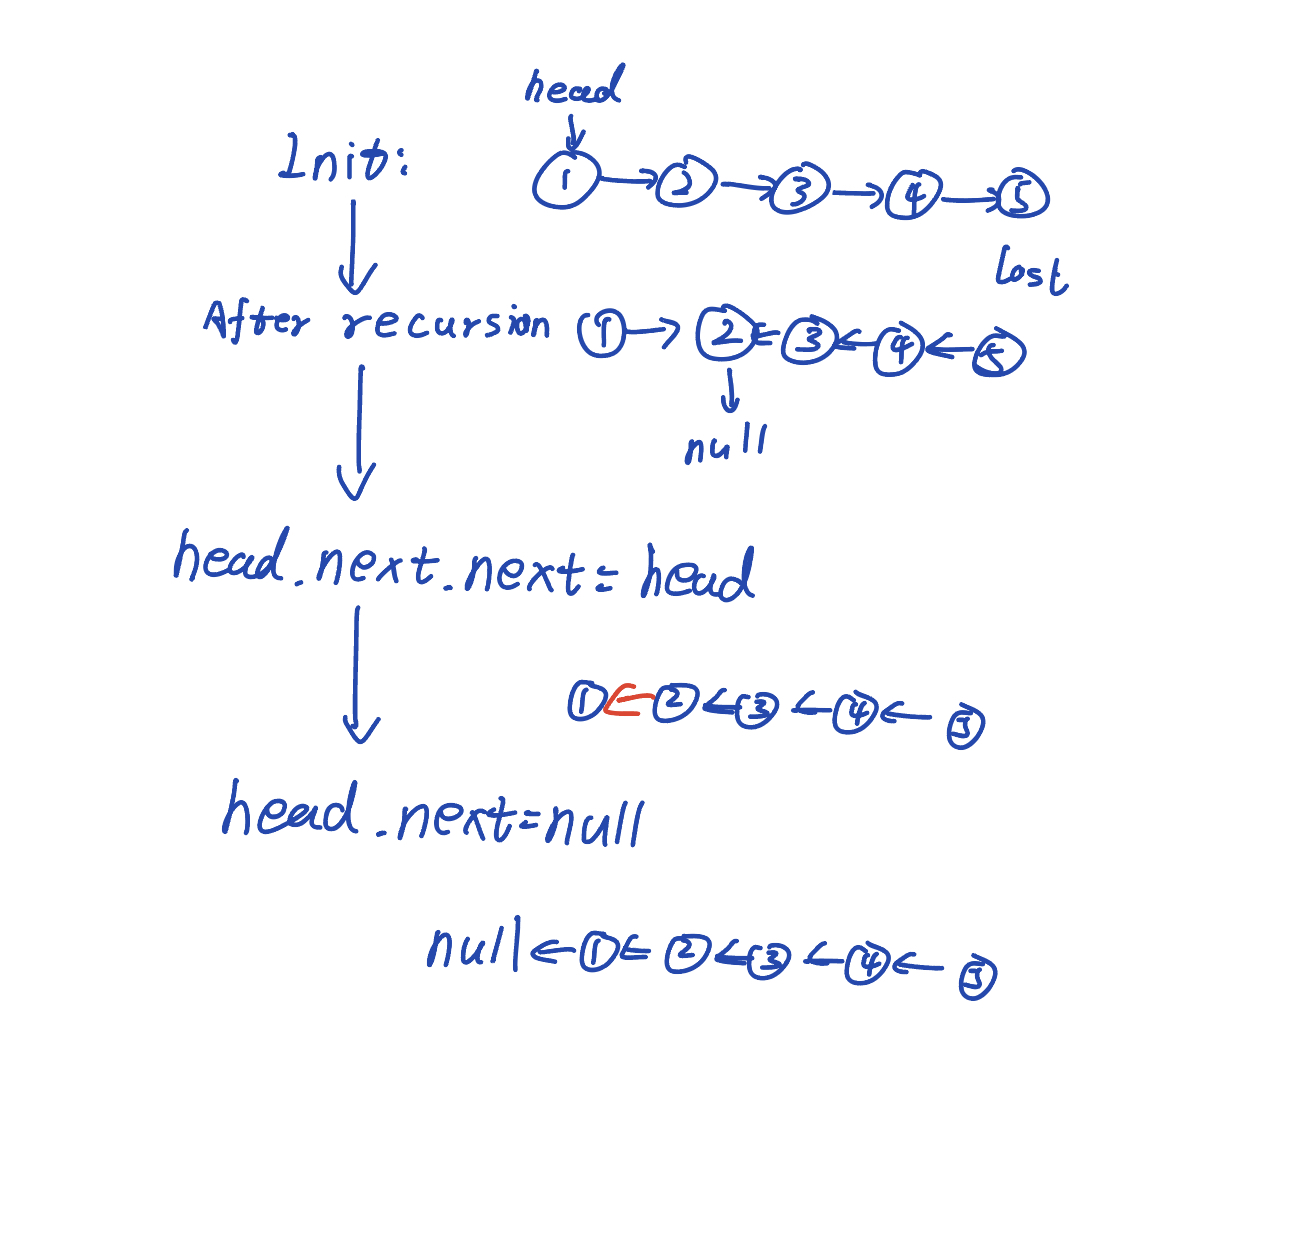 head
Init: 1 2 3 4 5
last
After recursion 1 2 3 4 5
null
head.next.next=head
1 2 3 4 5
head.next=null
null 1 2 3 4 5